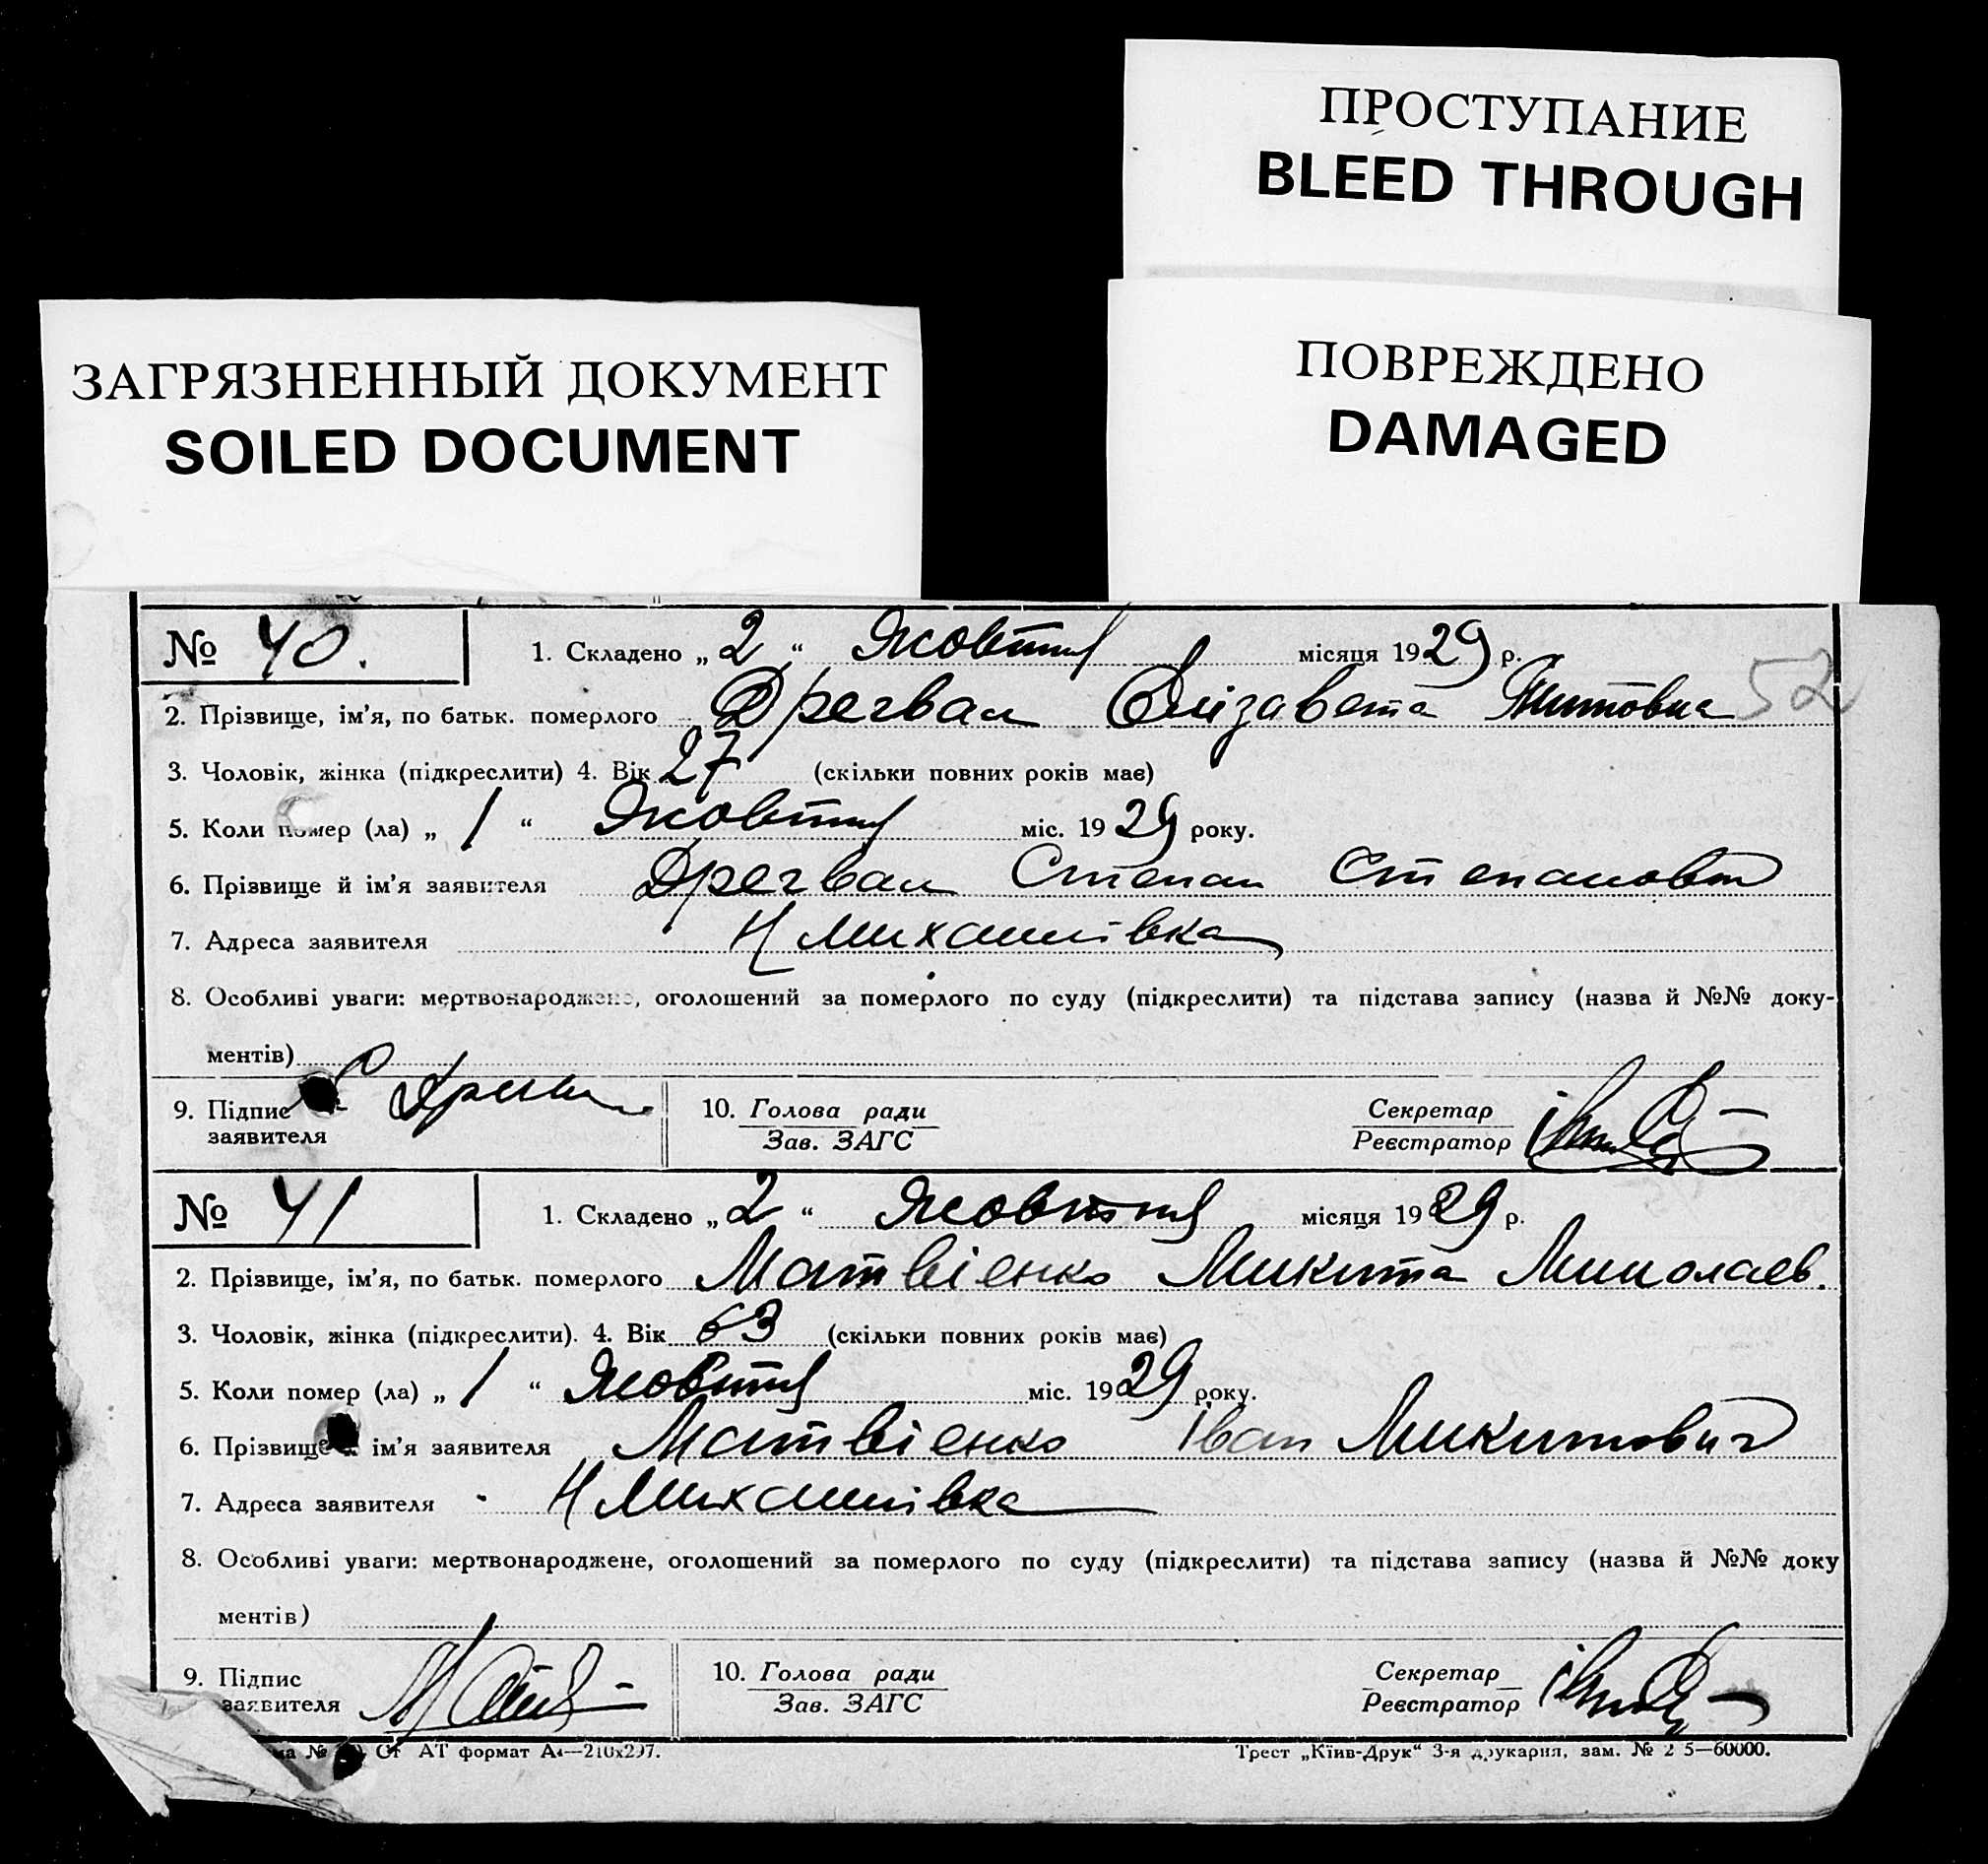 ПРОСТУПАНИЕ
BLEED THROUGH
ЗАГРЯЗНЕННЫЙ ДОКУМЕНТ
SOILED DOCUMENT
ПОВРЕЖДЕНО
DAMAGED
№ 40. 1. Складено „ 2 “ Жовтня місяця 1929 р.
52
2. Прізвище, ім'я, по батьк. померлого Дрегвал Єлізавета Титовна
3. Чоловік, жінка (підкреслити) 4. Вік 27 (скільки повних років має)
5. Коли помер (ла) „ 1 “ Жовтня міс. 1929 року.
6. Прізвище й ім'я заявителя Дрегвал Степан Степанович
7. Адреса заявителя Н Михайлівка
8. Особливі уваги: мертвонароджене, оголошений за померлого по суду (підкреслити) та підстава запису (назва й №№ доку-
ментів)
9. Підпис заявителя 10. Голова ради Зав. ЗАГС Секретар Реєстратор
№ 41 1. Складено „ 2 “ Жовтня місяця 1929 р.
2. Прізвище, ім'я, по батьк. померлого Матвієнко Микита Миколаєв.
3. Чоловік, жінка (підкреслити). 4. Вік 63 (скільки повних років має)
5. Коли помер (ла) „ 1 “ Жовтня міс. 1929 року.
6. Прізвище й ім'я заявителя Матвієнко Іван Микитович
7. Адреса заявителя Н Михайлівка
8. Особливі уваги: мертвонароджене, оголошений за померлого по суду (підкреслити) та підстава запису (назва й №№ доку
ментів)
9. Підпис заявителя 10. Голова ради Зав. ЗАГС Секретар Реєстратор
АТ формат А4—210х297. Трест „Київ-Друк“ 3-я друкарня, зам. №